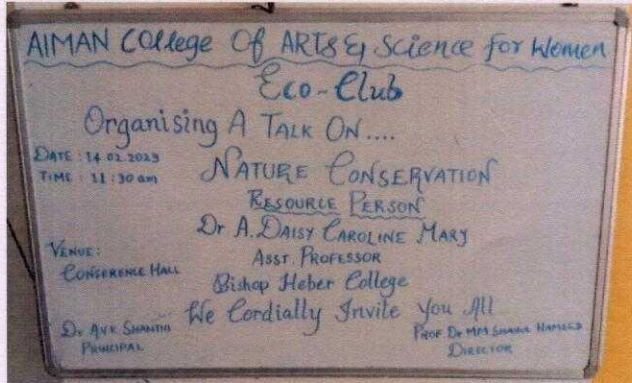 AIMAN College Of ARTS & Science for Women
Eco-Club
Organising A TALK ON....
DATE : 14.02.2023
TIME : 11:30 am
NATURE CONSERVATION
RESOURCE PERSON
Dr A. DAISY CAROLINE MARY
ASST. PROFESSOR
Bishop Heber College
VENUE :
CONFERENCE HALL
We Cordially Invite You All
Dr AVK SHANTHI
PRINCIPAL
PROF Dr MM
DIRECTOR